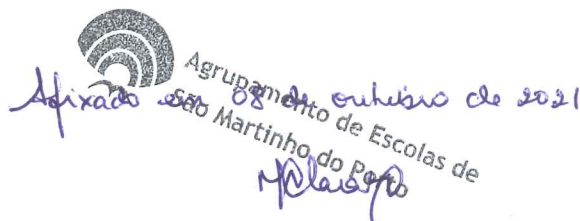 Agrupamento de Escolas de
São Martinho do Porto
Afixado em 08 de outubro de 2021